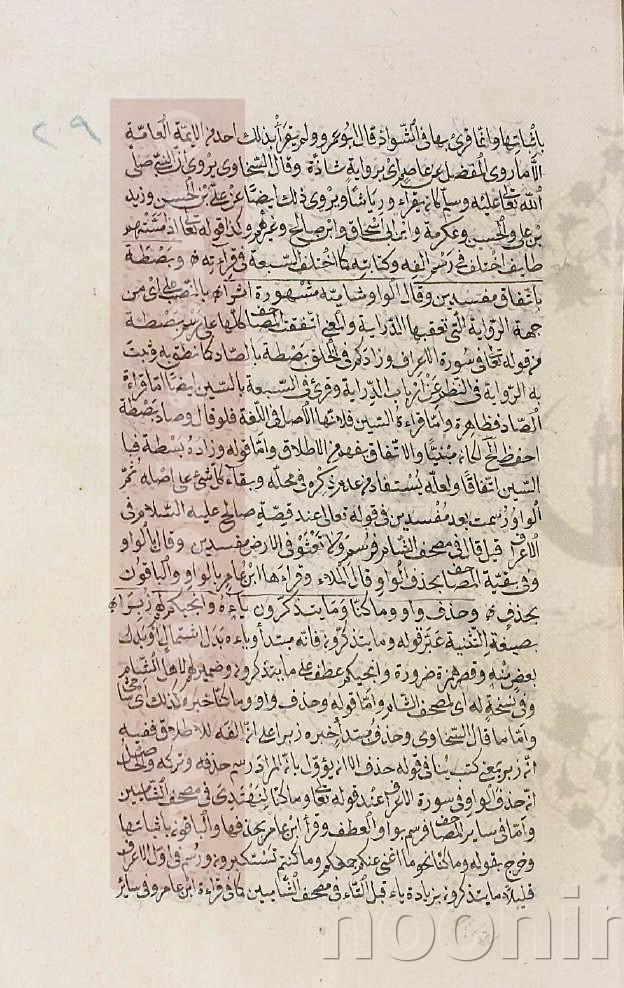 ٢٩
باثباتها وانما قرئ بها فى الشواذ قال ابو عمرو ولم يقرأ بذلك احد من الايمة العامة
الا ما روى المفضل عن عاصم اى برواية شاذة وقال السخاوى يروى ان النبى صلى
الله تعالى عليه وسلم كان يقراء ورياشا ويروى ذلك ايضا عن على بن الحسن وزيد
بن على والحسن وعكرمة وابن ابى اسحاق وابن صالح وغيرهم وكذا قوله تعالى اذا مسهم
طايف اختلف فى رسم الفه وكتابته كما اختلف السبعة فى قراءته وبصطة
باتفاق مفسدين وقال الواو شامية مشهورة اثرا بالنصب على اى من
جهة الرواية التى تعقبها الدراية والمعنى اتفقت المصاحف كلها على رسم بصطة
من قوله تعالى فى سورة الاعراف وزادكم فى الخلق بصطة بالصاد كما نطق به وثبت
به الرواية فى النظر عن ارباب الدراية وقرئ فى السبعة بالسين ايضا اما قراءة
الصاد فظاهرة واما قراءة السين فلانها الاصل فى اللغة فلو قال وصاد بصطة
احفظ الخ لكان مبنيا والاتفاق يفهم من الاطلاق واما قوله وزاده بسطة فبا
السين اتفاقا ولعله يستفاد من عدم ذكره فى محله وبقاء كل شئ على اصله ثم
الواو رسمت بعد مفسدين فى قوله تعالى عند قصة صالح عليه السلام فى
الاعراف قيل قال فى مصحف الشام فرسم ولا تعثوا فى الارض مفسدين وقال بالواو
وفى بقية المصاحف بحذف الواو قال الملاء وقراءها ابن عامر بالواو والباقون
بحذفه وحذف واو وما كنا وما يتذكرون ياءه وانجيكم زبرا
بصيغة التثنية عبر قوله وما يتذكرون فانه مبتدأ وياءه بدل اشتمال او بدل
بعض منه وقصر همزة ضرورة وانجيكم عطف على ما يتذكرون وضمير لهم لاهل الشام
وفى نسخة له اى لمصحف الشام واما قوله وحذف واو وما كنا خبره كذلك اى
واما ما قال السخاوى وحذف مبتدأ خبره زبرا على ان الفه للاطلاق ففيه
انه زبر بمعنى كتب ينافى قوله حذف الا ان يؤول بان المراد رسم حذفه وتركه والحاصل
انه حذف الواو فى سورة الاعراف عند قوله تعالى وما كنا لنهتدى فى مصحف الشاميين
واما فى ساير المصاحف فرسم بواو العطف وقرأ ابن عامر بحذفها والباقون باثباتها
وخرج بقوله وما كنا نحو ما اغنى عنكم جمعكم وما كنتم تستكبرون ورسم فى اول الاعراف
قليلا ما يتذكرون بزيادة ياء قبل التاء فى مصحف الشاميين كما فى قراءة ابن عامر وفى ساير
noonin